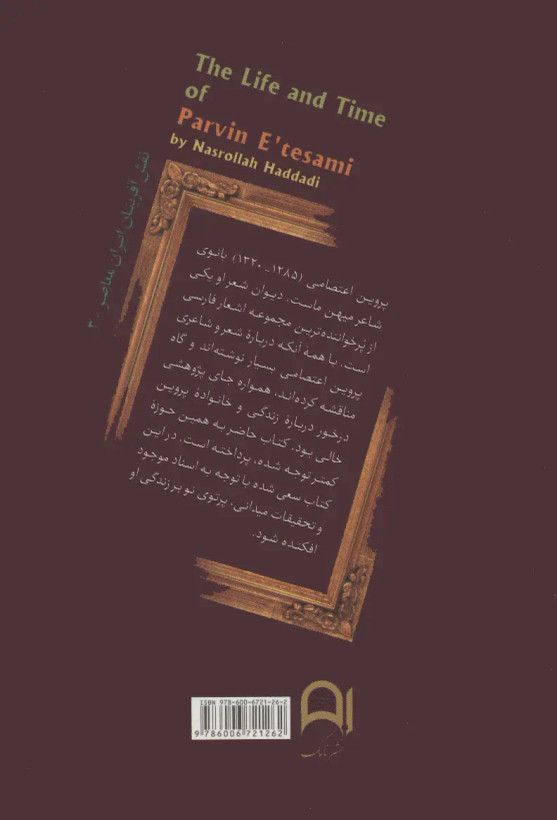 The Life and Time
of
Parvin E'tesami
by Nasrollah Haddadi
نقش آفرینان ایران معاصر ۳۰
پروین اعتصامی (۱۲۸۵ـ۱۳۲۰) بانوی
شاعر میهن ماست. دیوان شعر او یکی
از پُرخواننده‌ترین مجموعه اشعار فارسی
است. با همهٔ آنکه دربارهٔ شعر و شاعری
پروین اعتصامی بسیار نوشته‌اند و گاه
مناقشه کرده‌اند، همواره جای پژوهشی
درخور دربارهٔ زندگی و خانوادهٔ پروین
خالی بود. کتاب حاضر به همین حوزهٔ
کمتر توجه شده، پرداخته است. در این
کتاب سعی شده با توجه به اسناد موجود
و تحقیقات میدانی، پرتوی نو بر زندگی او
افکنده شود.
ISBN 978-600-6721-26-2
9 786006 721262
نشر نامک